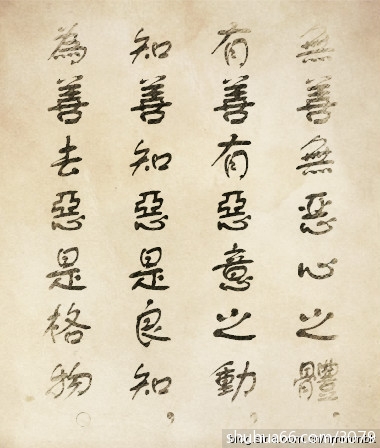 無善無惡心之體
有善有惡意之動，
知善知惡是良知，
為善去惡是格物。
shuhua66.com/3079